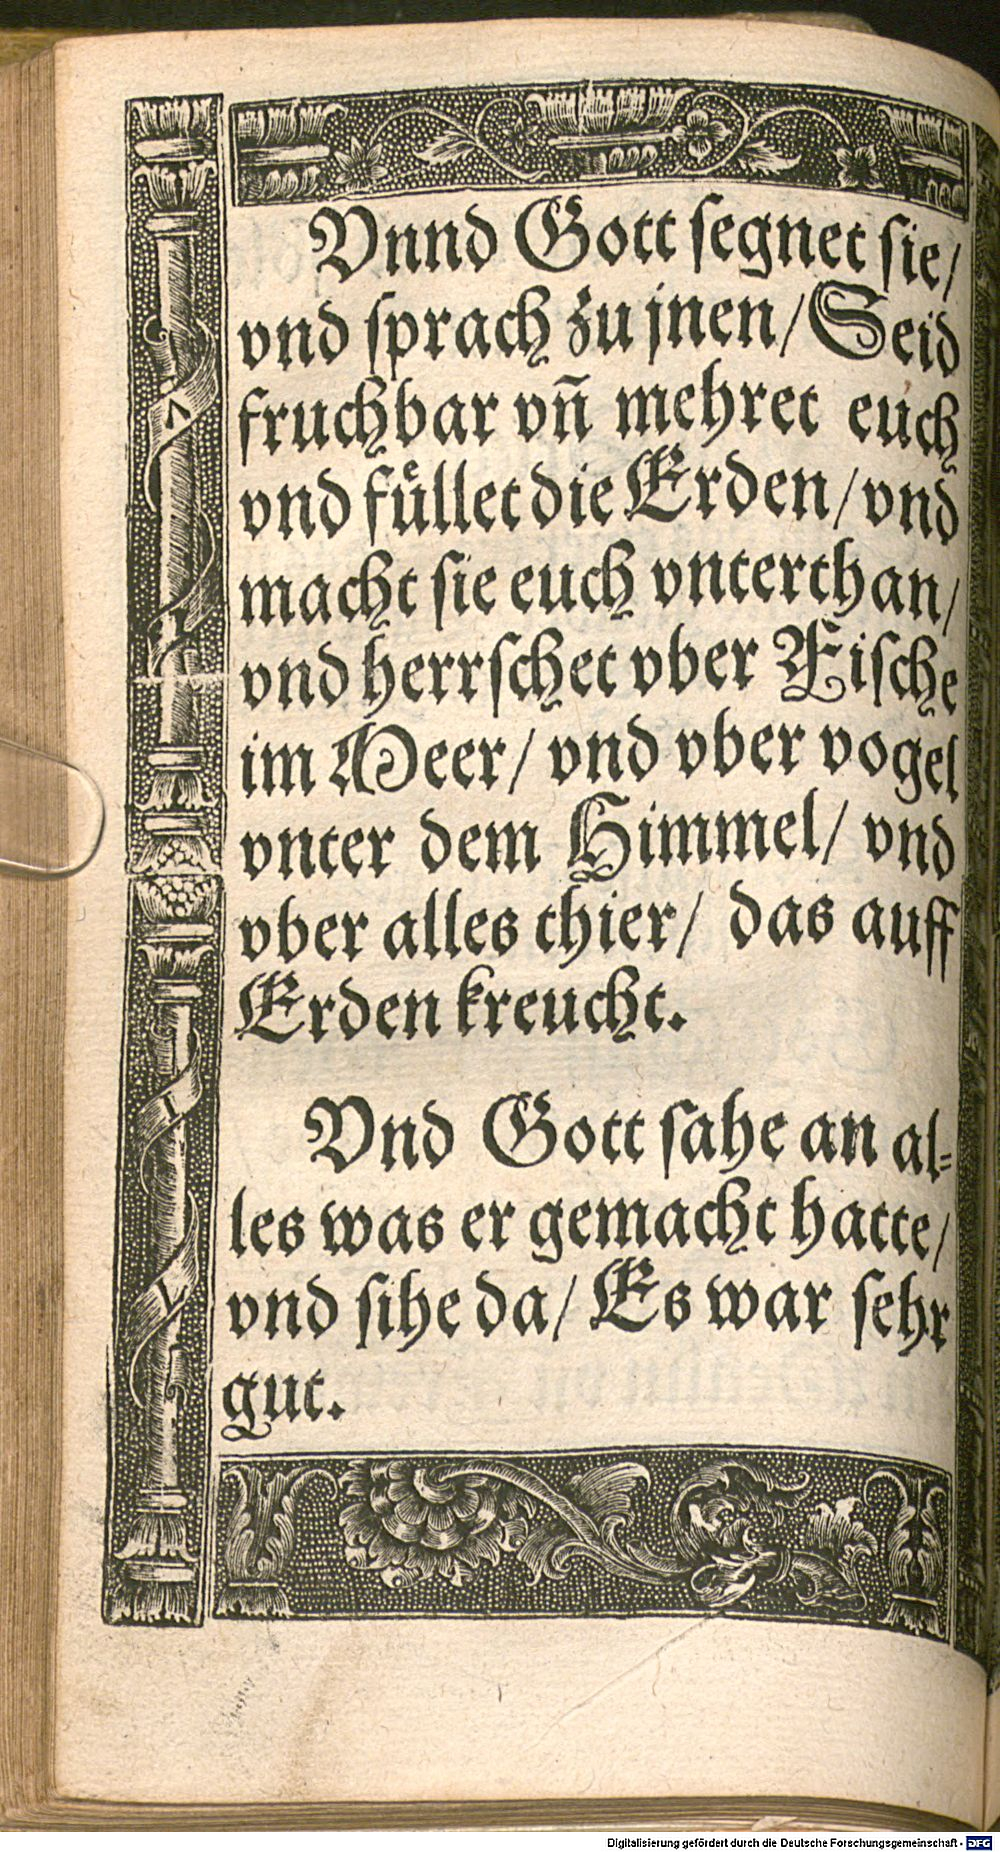 Vnnd Gott segnet sie/
vnd sprach zu jnen/ Seid
fruchbar vñ mehret euch
vnd fuͤllet die Erden/ vnd
macht sie euch vnterthan/
vnd herrschet vber Fische
im Meer/ vnd vber vogel
vnter dem Himmel/ vnd
vber alles thier/ das auff
Erden kreucht.
Vnd Gott sahe an al-
les was er gemacht hatte/
vnd sihe da/ Es war sehr
gut.
Digitalisierung gefördert durch die Deutsche Forschungsgemeinschaft - DFG